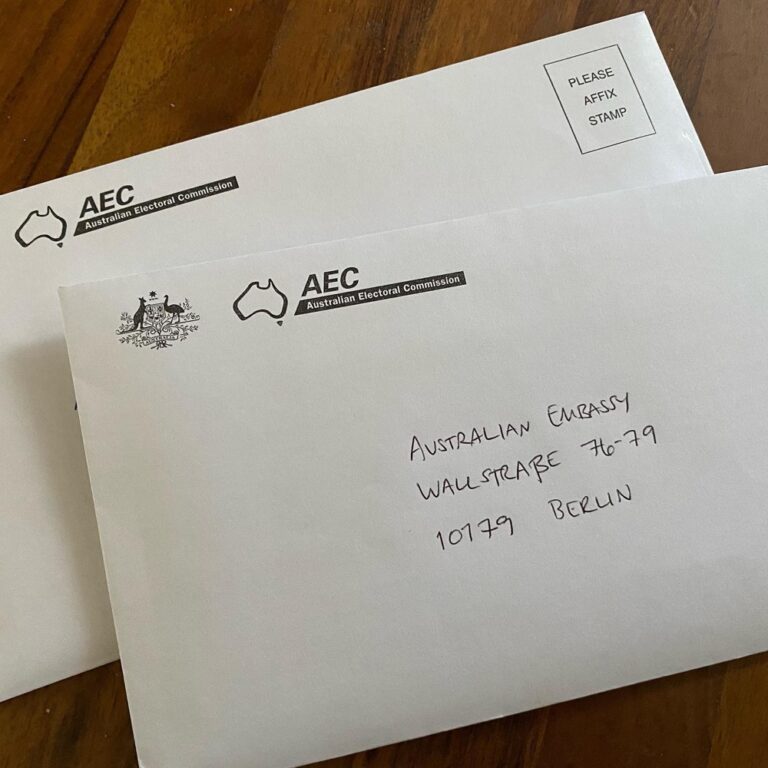 PLEASE
AFFIX
STAMP
AEC
Australian Electoral Commission
AEC
Australian Electoral Commission
AUSTRALIA
AUSTRALIAN EMBASSY
WALLSTRAßE 76-79
10179 BERLIN